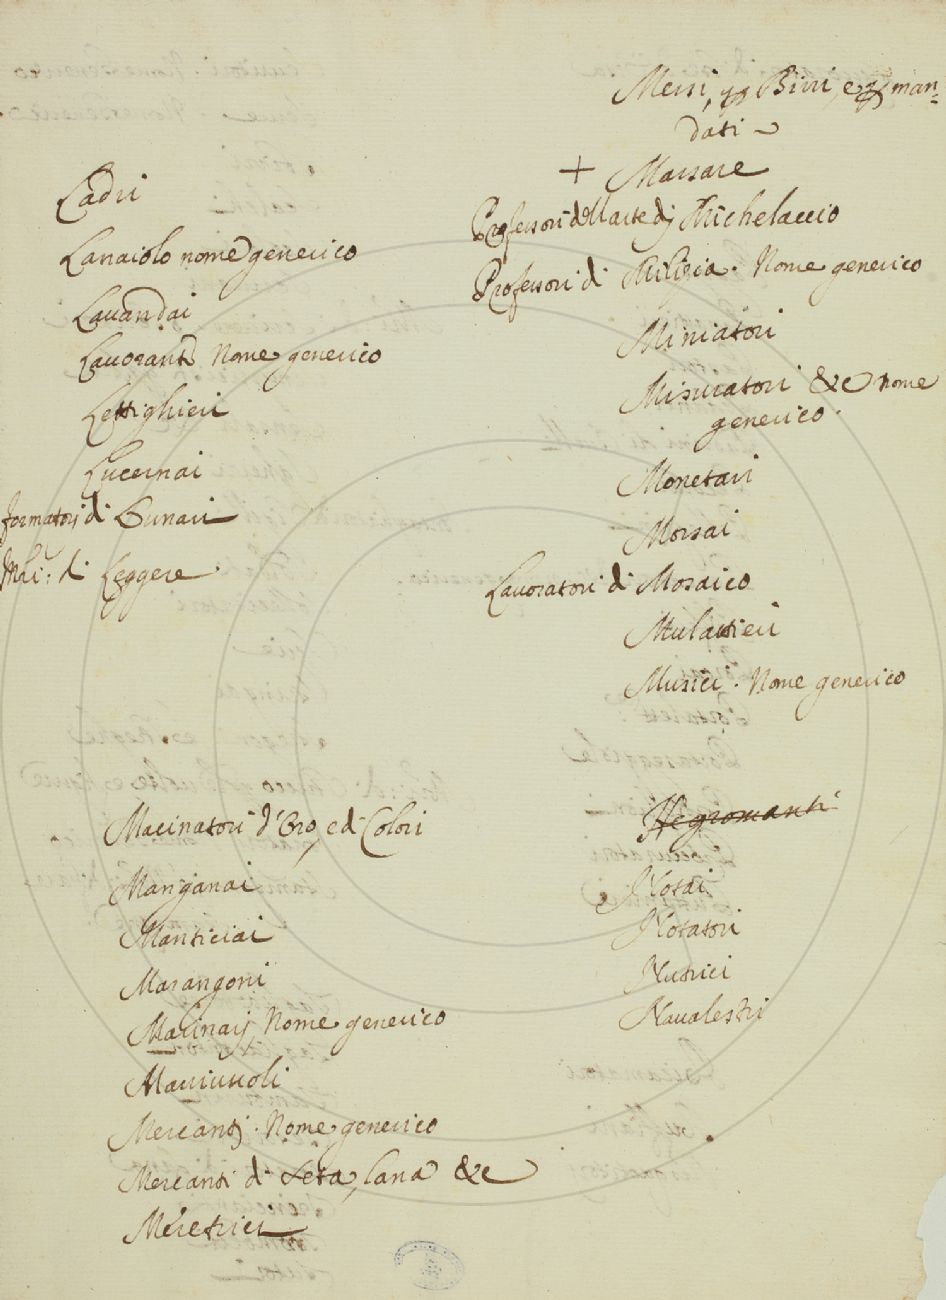 Ladri
Lanaiolo nome generico
Lavandai
Lavoranti Nome generico
Lettighieri
Lucernai
formatori di Lunari
Mri: di Leggere
Macinatori d'Oro, ed Colori
Manganai
Manticiai
Marangoni
Marinaij Nome generico
Mercanti. Nome generico
Mercanti di Seta, lana &c
Meretrici
Messi, Birri, e man=
dati
+ Massare
Professori dell arte di Michelaccio
Professori di Milizia. Nome generico
Miniatori
Misuratori &c nome
generico.
Monetari
Morsai
Lavoratori di Mosaico
Mulattieri
Musici. Nome generico
Negromanti
Notai
Notatori
Nutrici
Navalestri